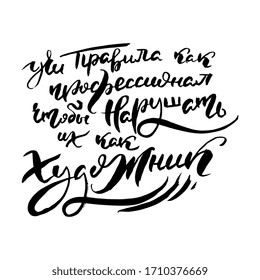 учи правила как
профессионал
чтобы нарушать
их как
художник
shutterstock.com · 1710376669